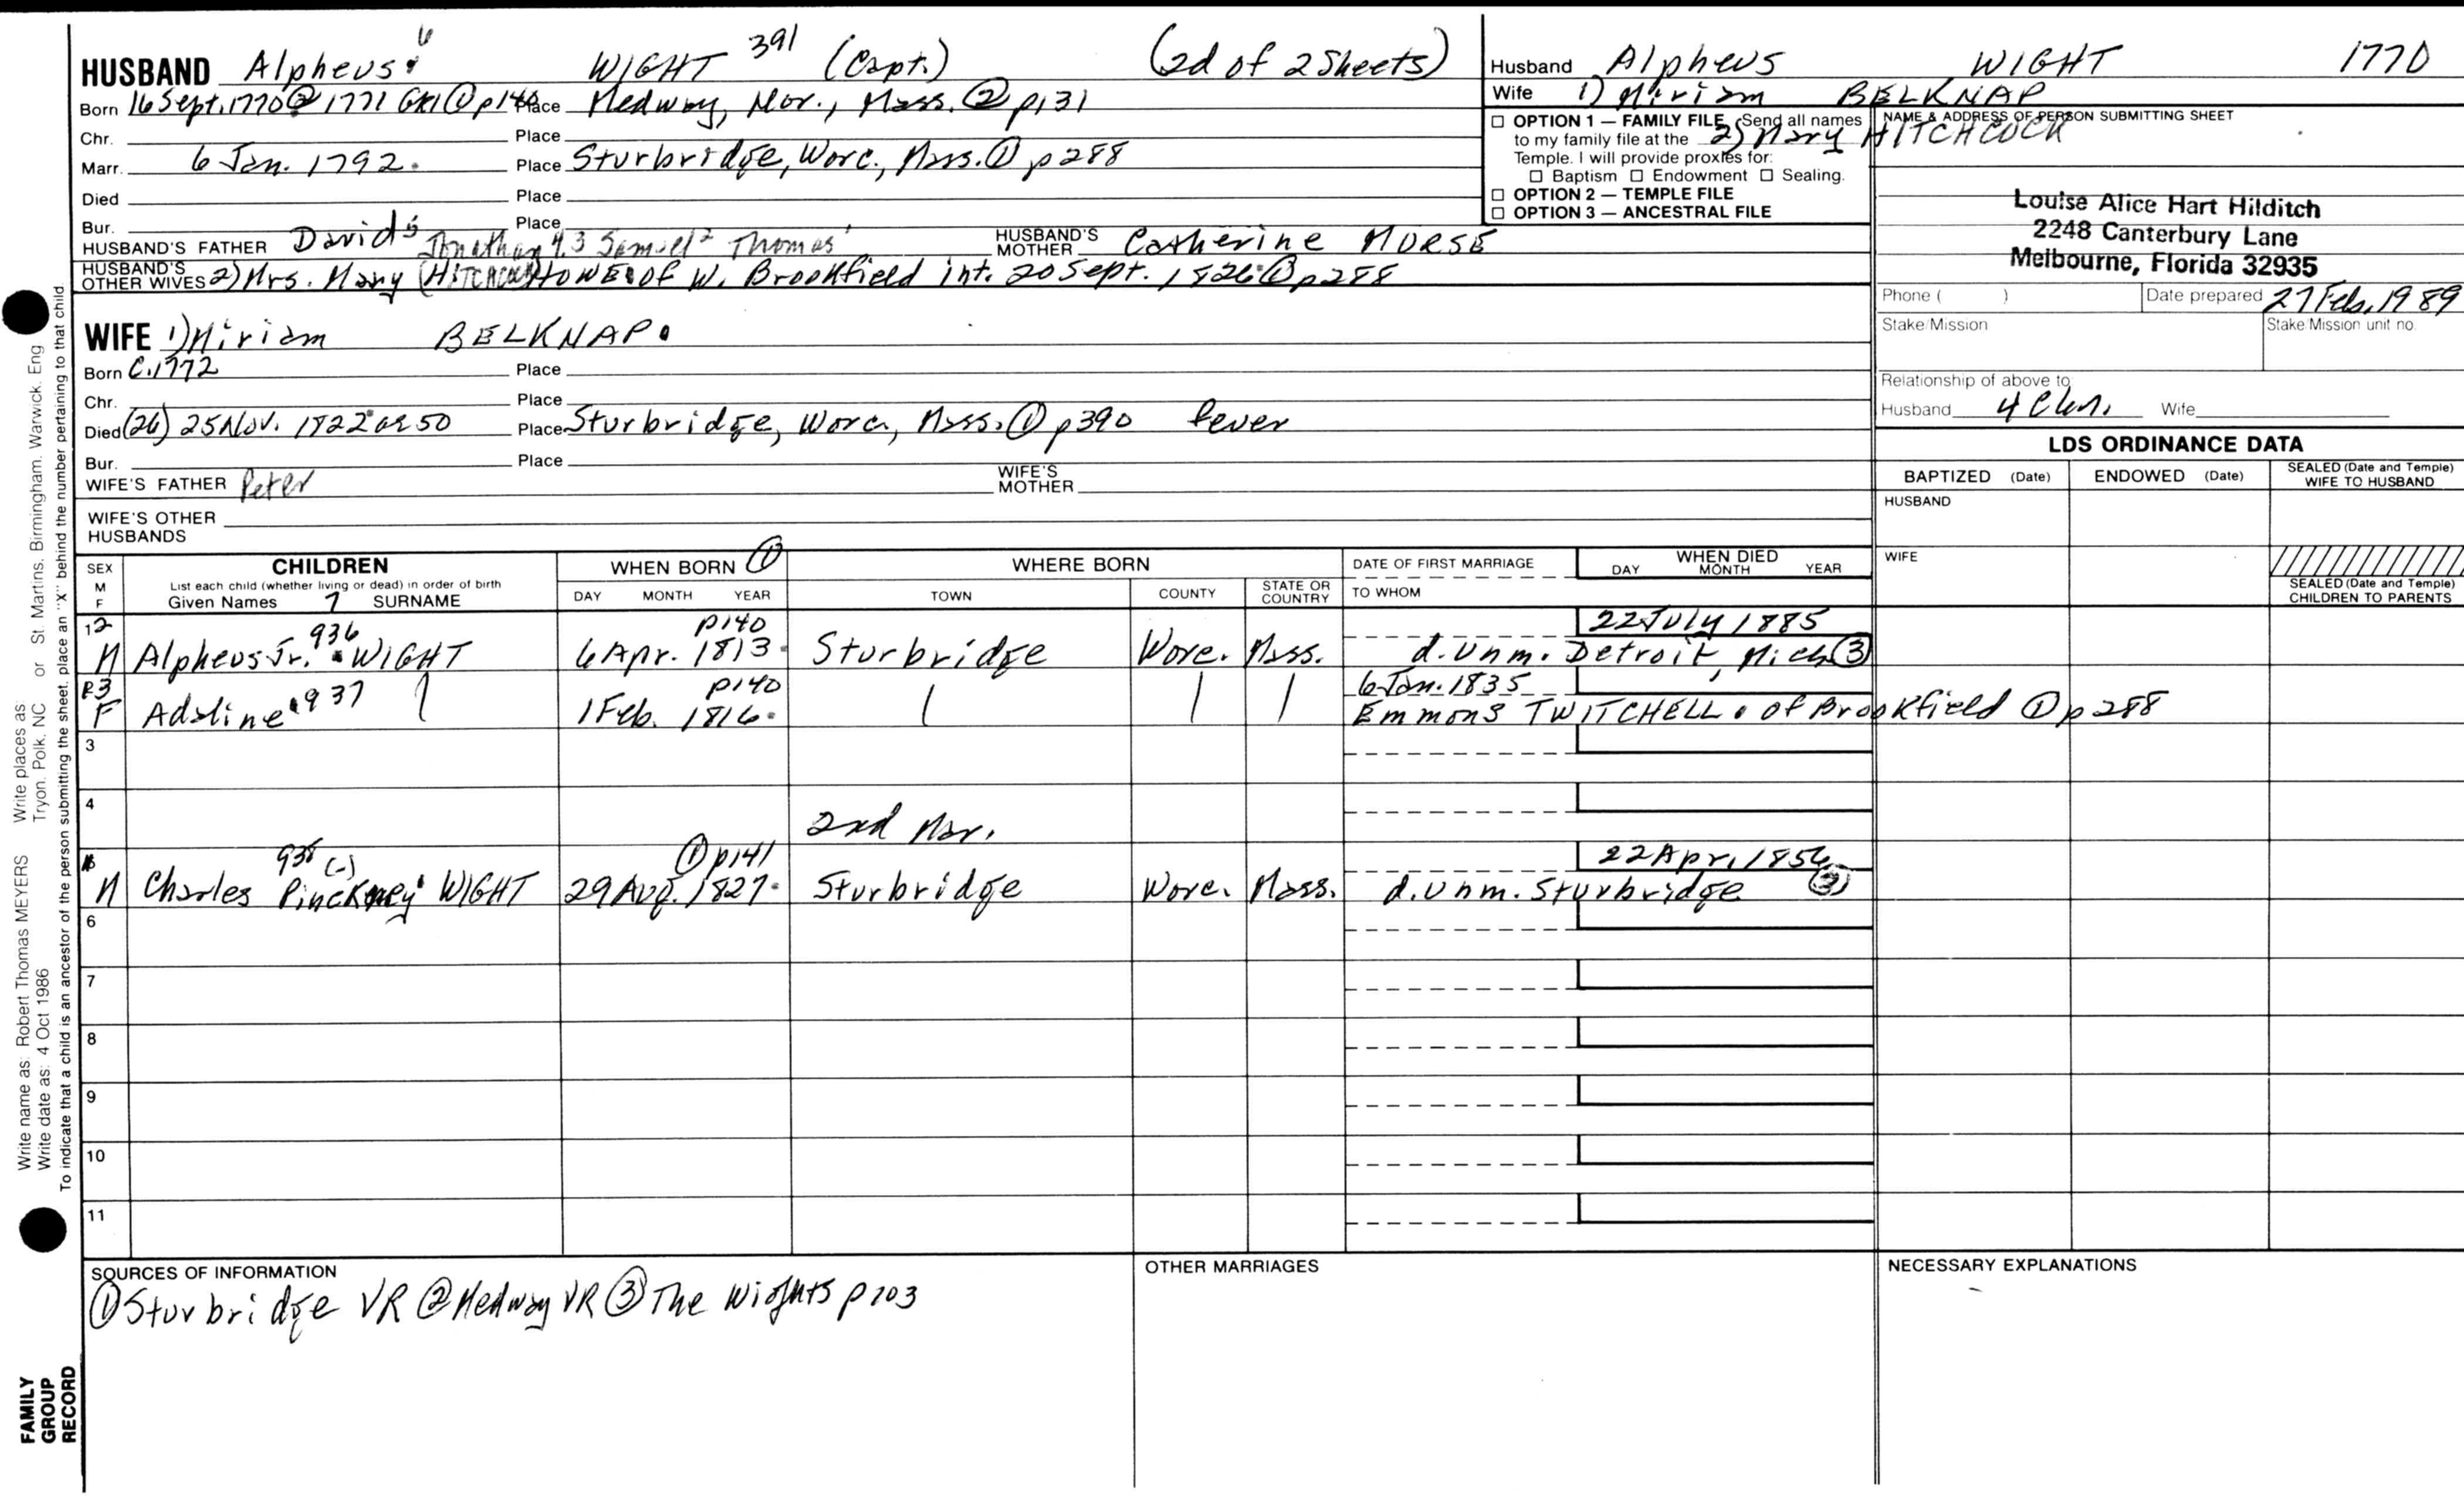 HUSBAND Alpheus 6 WIGHT 391 (Capt.) (2d of 2 Sheets)
Born 16 Sept. 1770 ② 1771 GR1 ① p140 Place Medway, Nor., Mass. ② p131
Chr. Place
Marr. 6 Jan. 1792. Place Sturbridge, Worc., Mass. ① p288
Died Place
Bur. Place
HUSBAND'S FATHER David 5 Jonathan 4,3 Samuel 2 Thomas 1 HUSBAND'S MOTHER Catherine MORSE
HUSBAND'S OTHER WIVES 2) Mrs. Mary (HITCHCOCK) HOWE of W. Brookfield int. 20 Sept. 1826 ① p288
WIFE 1) Miriam BELKNAP.
Born C. 1772 Place
Chr. Place
Died (26) 25 Nov. 1822 ae 50 Place Sturbridge, Worc., Mass. ① p390 fever
Bur. Place
WIFE'S FATHER Peter WIFE'S MOTHER
WIFE'S OTHER HUSBANDS
Husband Alpheus WIGHT 1770
Wife 1) Miriam BELKNAP
2) Mary HITCHCOCK
☐ OPTION 1 — FAMILY FILE Send all names
to my family file at the
Temple. I will provide proxies for:
☐ Baptism ☐ Endowment ☐ Sealing.
☐ OPTION 2 — TEMPLE FILE
☐ OPTION 3 — ANCESTRAL FILE
NAME & ADDRESS OF PERSON SUBMITTING SHEET
Louise Alice Hart Hilditch
2248 Canterbury Lane
Melbourne, Florida 32935
Phone ( ) Date prepared 27 Feb. 1989
Stake/Mission Stake/Mission unit no.
Relationship of above to:
Husband Wife
LDS ORDINANCE DATA
BAPTIZED (Date) ENDOWED (Date) SEALED (Date and Temple) WIFE TO HUSBAND
HUSBAND
WIFE
SEALED (Date and Temple) CHILDREN TO PARENTS
SEX M F
CHILDREN
List each child (whether living or dead) in order of birth
Given Names 7 SURNAME
WHEN BORN ①
DAY MONTH YEAR
WHERE BORN
TOWN COUNTY STATE OR COUNTRY
DATE OF FIRST MARRIAGE
TO WHOM
WHEN DIED
DAY MONTH YEAR
12 936 p140 22 July 1885
M Alpheus Jr. WIGHT 6 Apr. 1813 Sturbridge Worc. Mass. d. unm. Detroit, Mich ③
13 937 p140 6 Jan. 1835
F Adaline 1 Feb. 1816. Emmons TWITCHELL. of Brookfield ① p288
3
4
2nd Mar.
938 (-) ① p141 22 Apr. 1856
M Charles Pinckney WIGHT 29 Aug. 1827. Sturbridge Worc. Mass. d. unm. Sturbridge ③
6
7
8
9
10
11
SOURCES OF INFORMATION
① Sturbridge VR ② Medway VR ③ The Wights p103
OTHER MARRIAGES
NECESSARY EXPLANATIONS
Write name as: Robert Thomas MEYERS Write places as
Write date as: 4 Oct 1986 Tryon. Polk, NC or St. Martins. Birmingham. Warwick. Eng
To indicate that a child is an ancestor of the person submitting the sheet, place an "X" behind the number pertaining to that child.
FAMILY
GROUP
RECORD